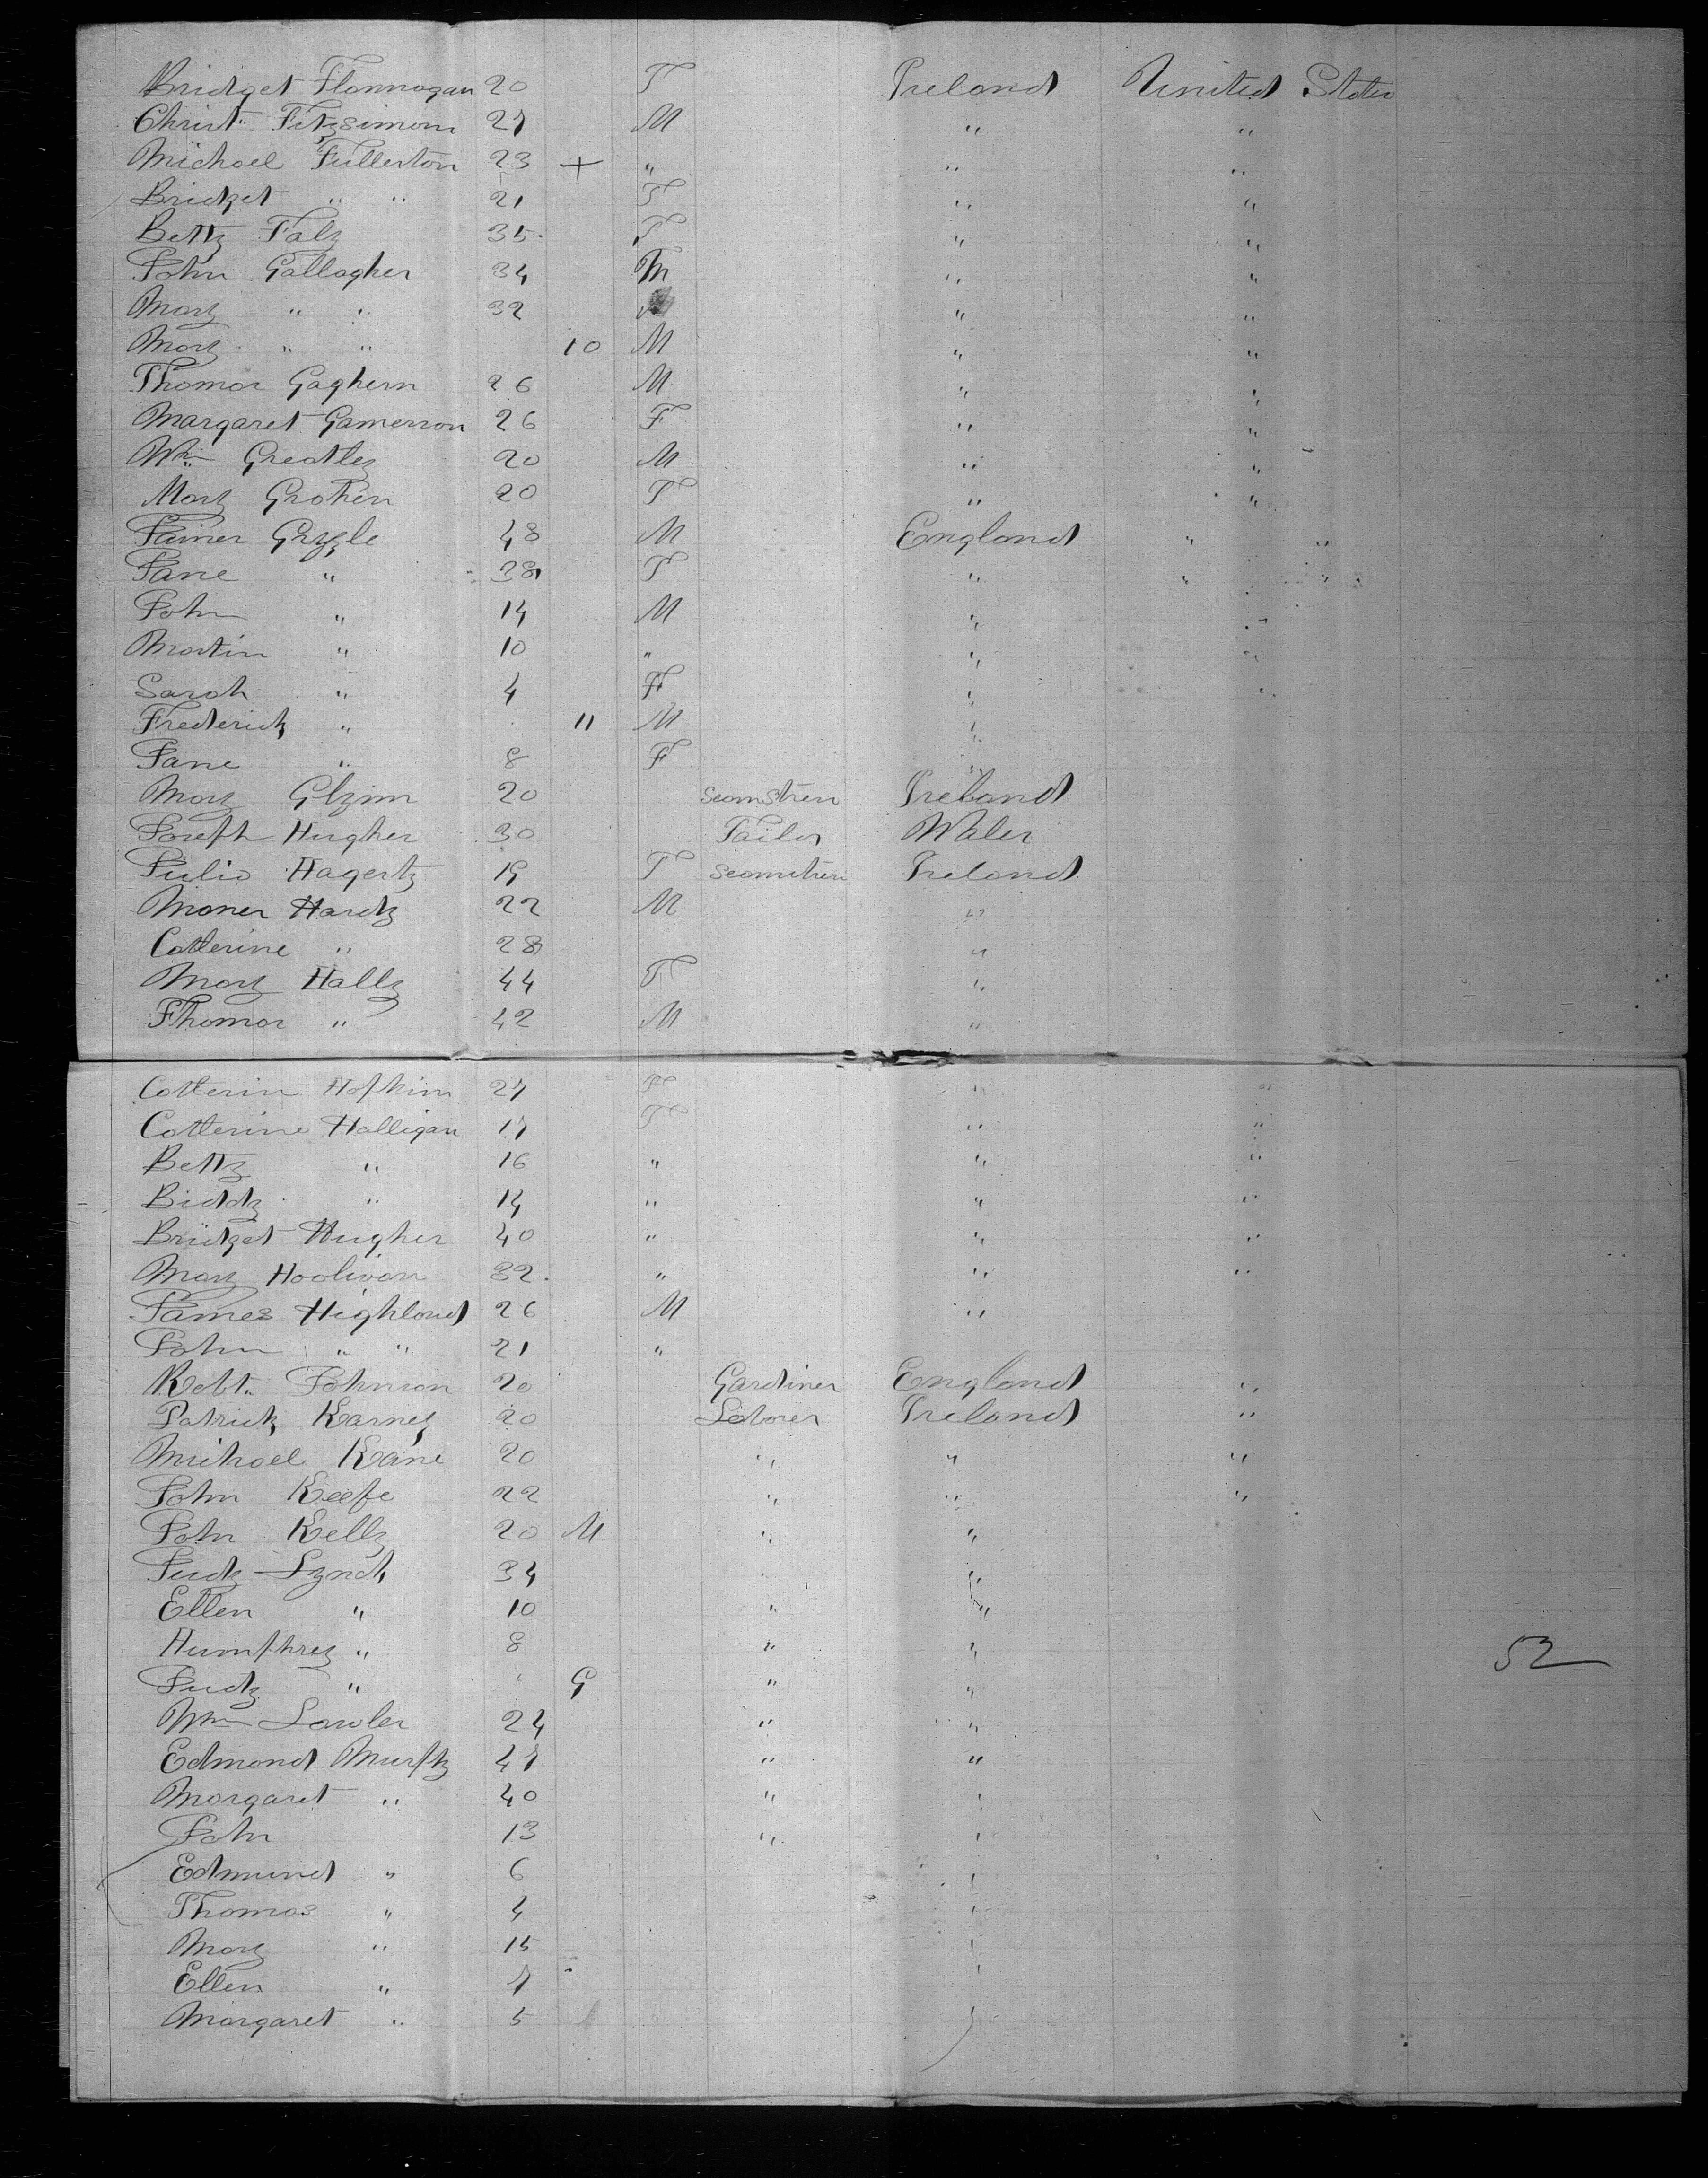 Bridget Flannagan 20 F Ireland United States
Christ. Fitzsimons 27 M " "
Michael Fullerton 23 + " " "
Bridget " " 21 F " "
Betty Faly 35 F " "
John Gallagher 34 M " "
Mary " " 32 " "
Mary " " 10 M " "
Thomas Gaghern 26 M " "
Margaret Gamerson 26 F " "
Wm Greatley 20 M " "
Mary Grohen 20 F " "
James Gryzle 48 M England " "
Jane " 38 F " " "
John " 14 M " "
Martin " 10 " " "
Sarah " 4 F " "
Frederick " 11 M "
Jane " 8 F "
Mary Glynn 20 Seamstress Ireland
Joseph Hughes 30 Tailor Wales
Julia Hagerty 19 F Seamstress Ireland
Moses Hardy 22 M "
Catterine " 28 "
Mary Hally 44 F "
Thomas " 42 M "
Catterin Hopkins 27 F " "
Catterine Halligan 17 F " "
Betty " 16 " " "
Biddy " 14 " " "
Bridget Hughes 40 " " "
Mary Hoolivan 32 " " "
James Highland 26 M "
John " " 21 "
Robt. Johnson 20 Gardiner England "
Patrick Karney 20 Laborer Ireland "
Michael Kane 20 " " "
John Keefe 22 " " "
John Kelly 20 M " "
Judy Lynch 34 "
Ellen " 10 " "
Humphrey " 8 " " 52
Judy " 9 " "
Wm Lawler 24 " "
Edmond Murphy 47 " "
Margaret " 40 " "
John 13 " "
Edmund " 6 "
Thomas " 4 "
Mary " 15 "
Ellen " 7 "
Margaret " 5